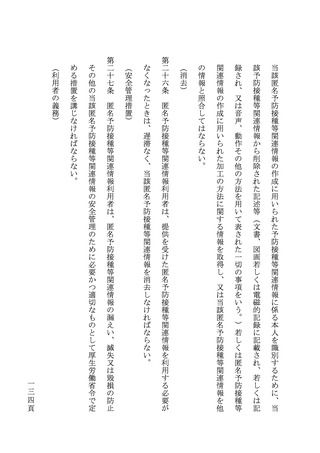 当該匿名予防接種等関連情報の作成に用いられた予防接種等関連情報に係る本人を識別するために、当
該予防接種等関連情報から削除された記述等（文書、図画若しくは電磁的記録に記載され、若しくは記
録され、又は音声、動作その他の方法を用いて表された一切の事項をいう。）若しくは匿名予防接種等
関連情報の作成に用いられた加工の方法に関する情報を取得し、又は当該匿名予防接種等関連情報を他
の情報と照合してはならない。
（消去）
第二十六条　匿名予防接種等関連情報利用者は、提供を受けた匿名予防接種等関連情報を利用する必要が
なくなったときは、遅滞なく、当該匿名予防接種等関連情報を消去しなければならない。
（安全管理措置）
第二十七条　匿名予防接種等関連情報利用者は、匿名予防接種等関連情報の漏えい、滅失又は毀損の防止
その他の当該匿名予防接種等関連情報の安全管理のために必要かつ適切なものとして厚生労働省令で定
める措置を講じなければならない。
（利用者の義務）
一三四頁